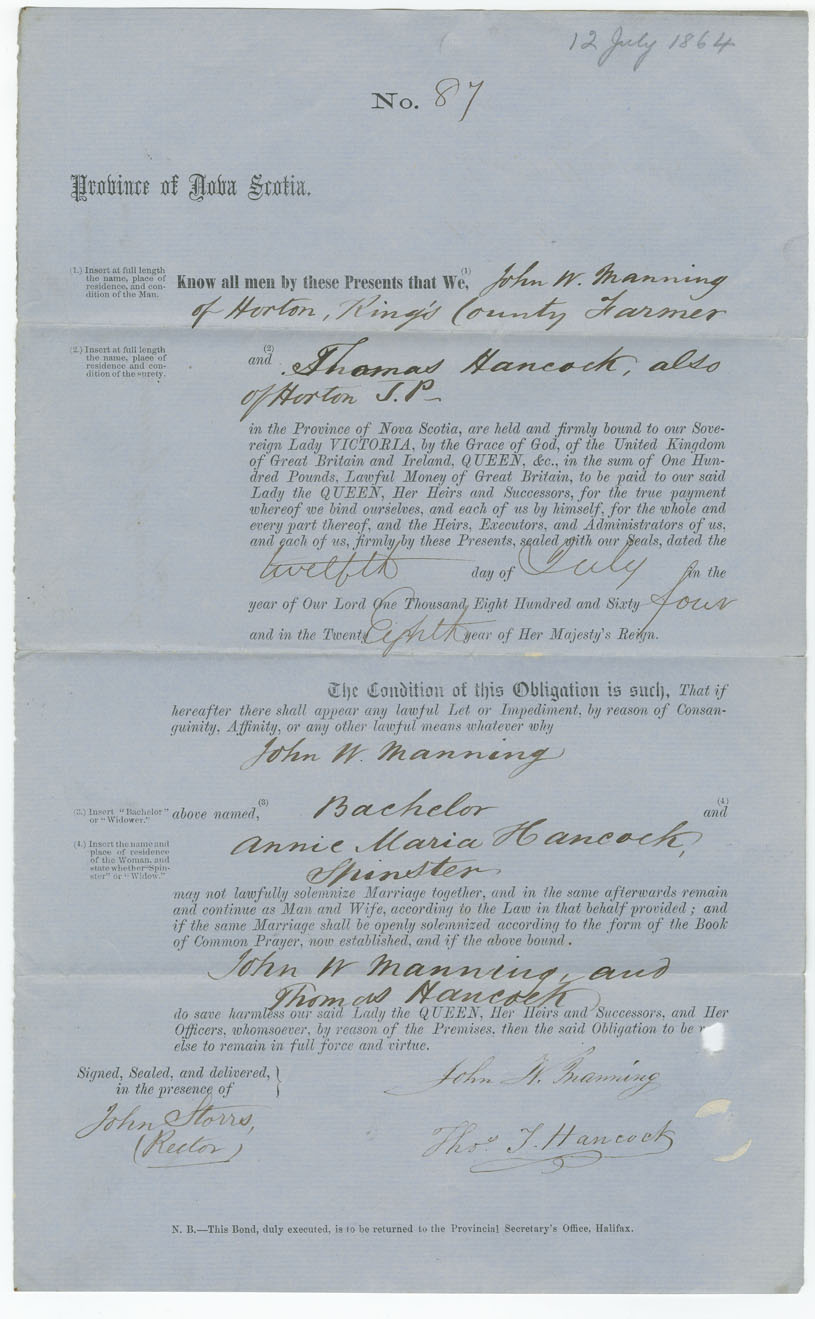 12 July 1864
No. 87
Province of Nova Scotia.
(1.) Insert at full length
the name, place of
residence, and con-
dition of the Man.
Know all men by these Presents that We,(1) John W. Manning
of Horton, King's County Farmer
(2.) Insert at full length
the name, place of
residence and con-
dition of the surety.
and(2) Thomas Hancock, also
of Horton J.P.
in the Province of Nova Scotia, are held and firmly bound to our Sove-
reign Lady VICTORIA, by the Grace of God, of the United Kingdom
of Great Britain and Ireland, QUEEN, &c., in the sum of One Hun-
dred Pounds, Lawful Money of Great Britain, to be paid to our said
Lady the QUEEN, Her Heirs and Successors, for the true payment
whereof we bind ourselves, and each of us by himself, for the whole and
every part thereof, and the Heirs, Executors, and Administrators of us,
and each of us, firmly by these Presents, sealed with our Seals, dated the
twelfth day of July in the
year of Our Lord One Thousand Eight Hundred and Sixty four
and in the Twenty Eighth year of Her Majesty's Reign.
The Condition of this Obligation is such, That if
hereafter there shall appear any lawful Let or Impediment, by reason of Consan-
guinity, Affinity, or any other lawful means whatever why
John W. Manning
(3.) Insert "Bachelor"
or "Widower."
above named,(3) Bachelor and (4)
(4.) Insert the name and
place of residence
of the Woman, and
state whether "Spin-
ster" or "Widow."
Annie Maria Hancock,
Spinster
may not lawfully solemnize Marriage together, and in the same afterwards remain
and continue as Man and Wife, according to the Law in that behalf provided; and
if the same Marriage shall be openly solemnized according to the form of the Book
of Common Prayer, now established, and if the above bound.
John W Manning, and
Thomas Hancock
do save harmless our said Lady the QUEEN, Her Heirs and Successors, and Her
Officers, whomsoever, by reason of the Premises, then the said Obligation to be
else to remain in full force and virtue.
Signed, Sealed, and delivered,
in the presence of
John Storrs,
(Rector)
John W. Manning
Thos. T. Hancock
N. B.—This Bond, duly executed, is to be returned to the Provincial Secretary's Office, Halifax.